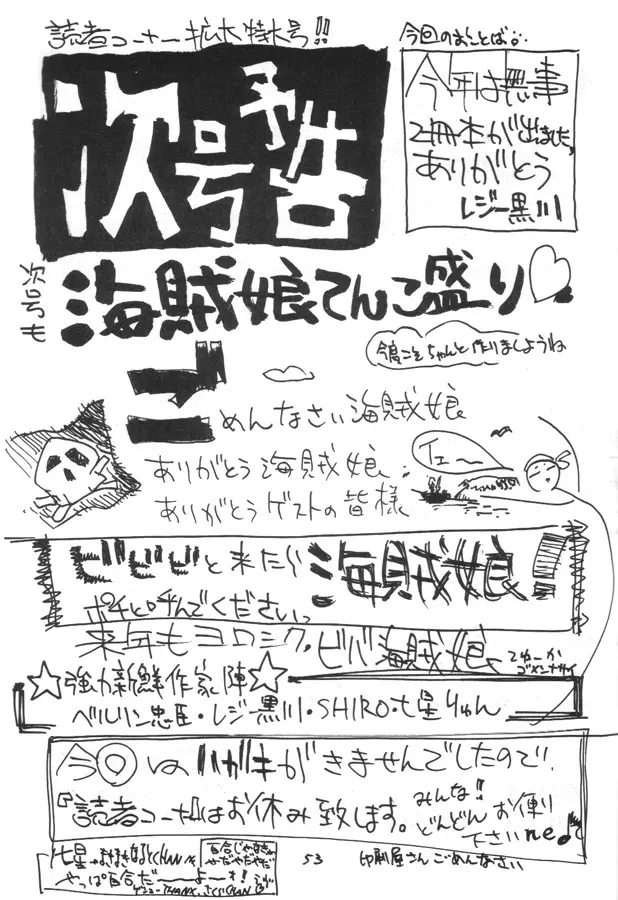 読者コーナー拡大特大号!!
次号予告
今回のおことば…
今年は無事
2冊本が出ました
ありがとう
レジー黒川
次号も
海賊娘てんこ盛り♡
今度こそちゃんと作りましようね
ごめんなさい海賊娘
ありがとう海賊娘
ありがとうゲストの皆様
イエー
ビビビと来たら海賊娘!
ポチと呼んでください。
来年もヨロシク。ビバ海賊娘
てゆーか
ゴメンナサイ
☆強力新鮮作家陣☆
ベルリン忠臣・レジー黒川・SHIRO・七星りゅん
今回はハガキがきませんでしたので、
『読者コーナー』はお休み致します。
みんな!!
どんどんお便り
下さいne♪
やっぱ百合だ〜よー!
53
印刷屋さんごめんなさい